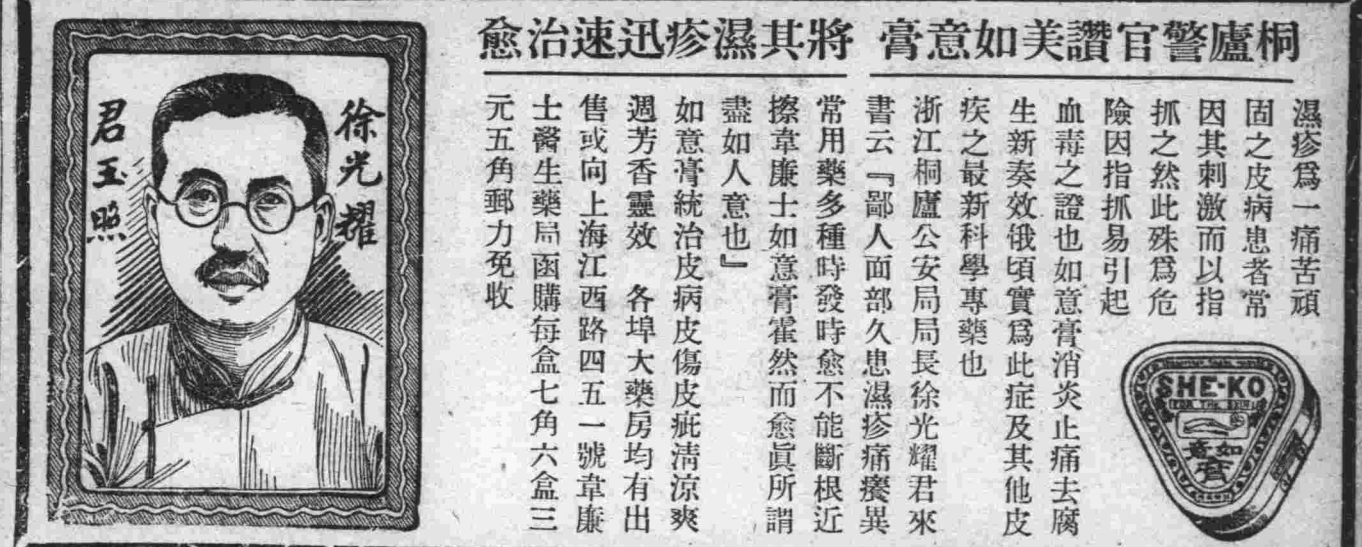 桐廬警官讚美如意膏
將其濕疹迅速治愈
濕疹爲一痛苦頑
固之皮病患者常
因其刺激而以指
抓之然此殊爲危
險因指抓易引起
血毒之證也如意膏消炎止痛去腐
生新奏效俄頃實爲此症及其他皮
疾之最新科學專藥也
浙江桐廬公安局局長徐光耀君來
書云『鄙人面部久患濕疹痛癢異
常用藥多種時發時愈不能斷根近
擦韋廉士如意膏霍然而愈眞所謂
盡如人意也』
如意膏統治皮病皮傷皮疵淸涼爽
週芳香靈效 各埠大藥房均有出
售或向上海江西路四五一號韋廉
士醫生藥局函購每盒七角六盒三
元五角郵力免收
SHE-KO
FOR THE SKIN
如意
膏
徐光耀
君玉照